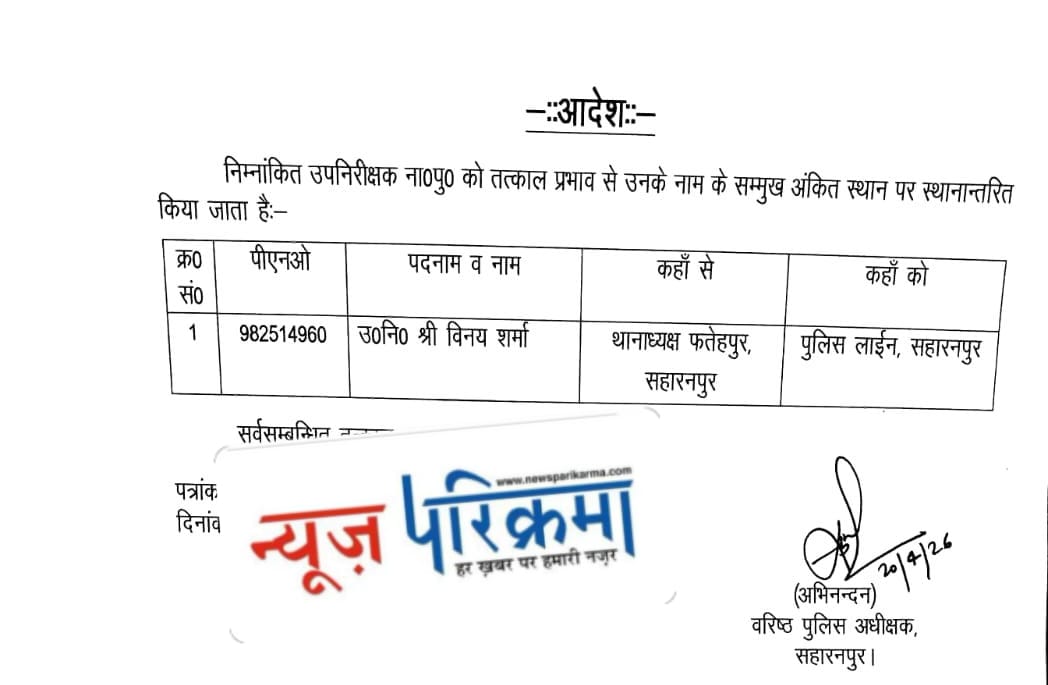 –::आदेश::–
निम्नांकित उपनिरीक्षक ना0पु0 को तत्काल प्रभाव से उनके नाम के सम्मुख अंकित स्थान पर स्थानान्तरित
किया जाता है:–
क्र0 सं0 पीएनओ पदनाम व नाम कहाँ से कहाँ को
1 982514960 उ0नि0 श्री विनय शर्मा थानाध्यक्ष फतेहपुर, पुलिस लाईन, सहारनपुर
सहारनपुर
सर्वसम्बन्धित
पत्रांक
www.newsparikarma.com
न्यूज़ परिक्रमा
हर ख़बर पर हमारी नज़र
20/4/26
(अभिनन्दन)
वरिष्ठ पुलिस अधीक्षक,
सहारनपुर।